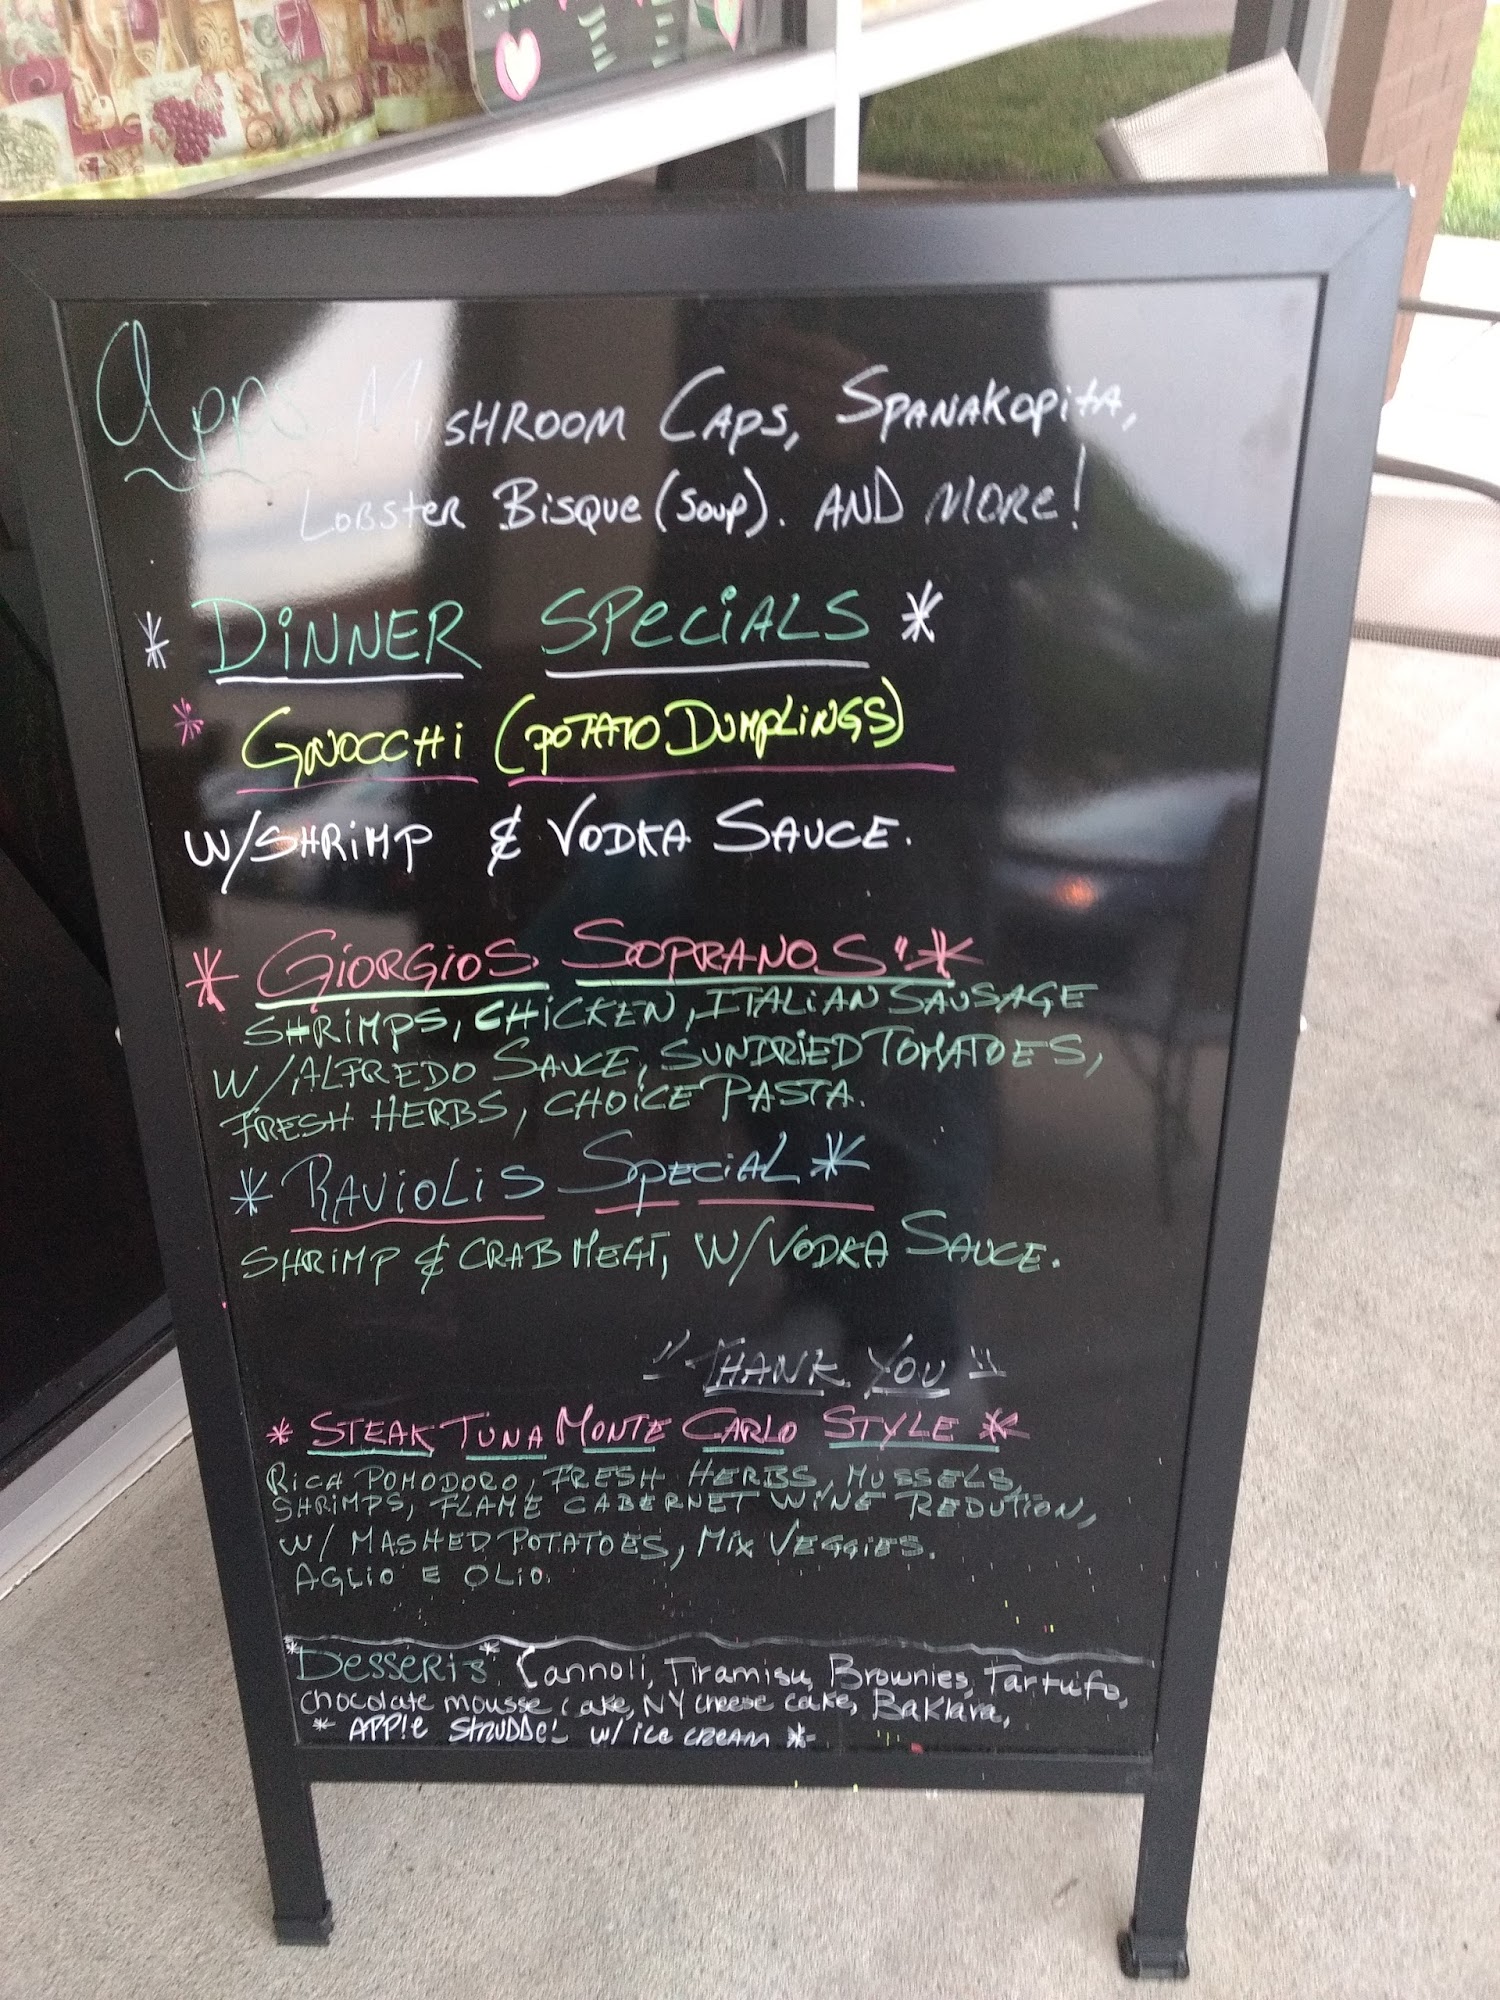 Apps Mushroom Caps, Spanakopita,
Lobster Bisque (Soup). AND MORe!
* DiNNER SPeCiALS *
* GNOCCHi (POTATO DUMPLiNGS)
W/SHRiMP & VODKA SAUCE.
* GiORGiOS SOPRANOS" *
SHRiMPS, CHiCKEN, ITALIAN SAUSAGE
W/ALFREDO SAUCE, SUNDRiED TOMATOES,
FRESH HERBS, CHOiCE PASTA.
* RAViOLiS SPECiAL *
SHRiMP & CRAB MEAT, W/VODKA SAUCE.
"THANK YOU"
* STEAK TUNA MONTE CARLO STYLE *
RiCA POMODORO, FRESH HERBS, MUSSELS,
SHRiMPS, FLAME CABERNET WiNE REDUTiON,
W/ MASHED POTATOES, MiX VEGGiES.
AGLiO E OLiO.
*Desserts* Cannoli, Tiramisu, Brownies, Tartufo,
chocolate mousse cake, NY cheese cake, Baklava,
* APPle STRUDDEL w/ ice cream *